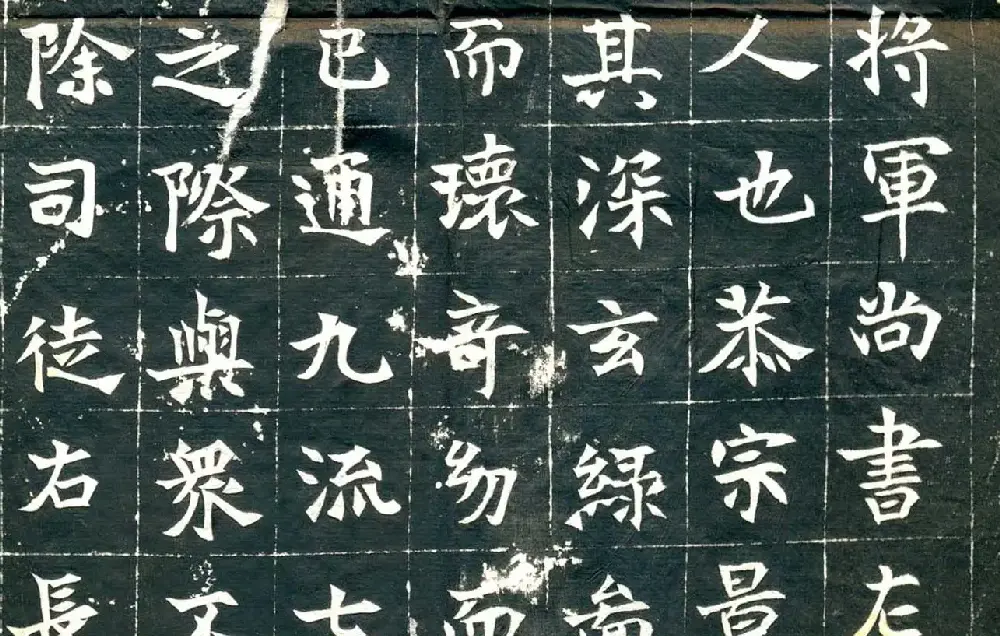 將軍尚書左
人也恭宗景
其深玄綠參
而瓌奇幼而
已通九流七
之際與眾不
除司徒右長